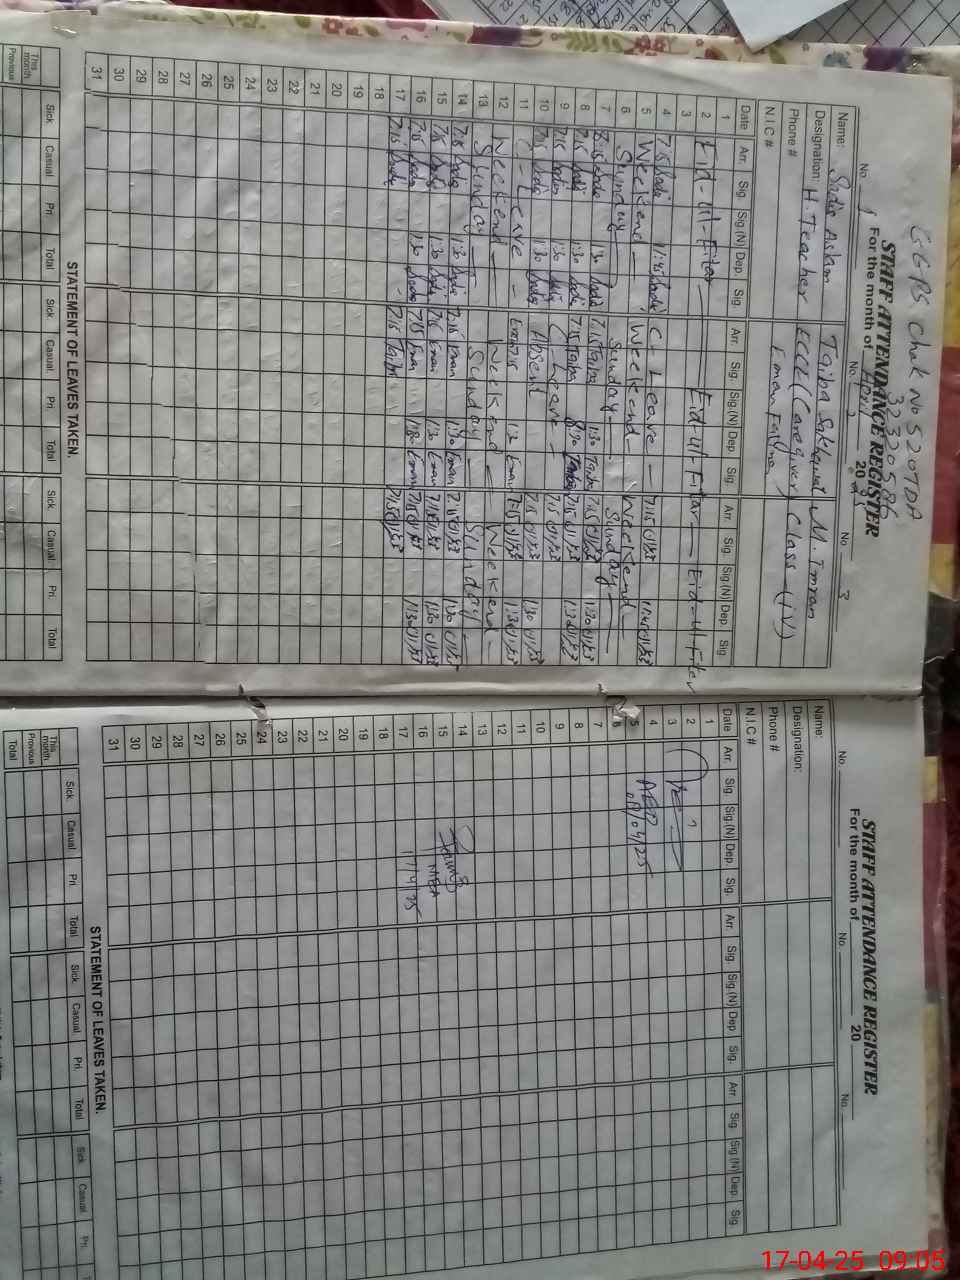 GGPS Chak No 520TDA
32320586
STAFF ATTENDANCE REGISTER
For the month of April 20
No. 1 No. 2 No. 3
Name: Sadia Aslam Taiba Sakhawat M. Imran
Designation: H. Teacher ECCE (Caregiver) Class-(iv)
Phone # Eman Fatima
N.I.C #
Date Arr. Sig. Sig.(N) Dep. Sig. Arr. Sig. Sig.(N) Dep. Sig. Arr. Sig. Sig.(N) Dep. Sig.
1
2 Eid-ul-Fitar Eid-ul-Fitar Eid-ul-Fiter
3
4 7:15 Sadia 11:45 Sadia C-Leave 7:15 11:45
5 Weekend Weekend Weekend
6 Sunday Sunday Sunday
7 8:15 Sadia 1:30 Sadia 7:15 Taiba 1:30 Taiba 7:15 1:30
8 7:15 Sadia 1:30 Sadia 7:15 Taiba 1:30 Taiba 7:15 1:30
9 7:15 Sadia 1:30 Sadia C-Leave 7:15
10 7:15 Sadia 1:30 Sadia Absent 7:15 1:30
11 C-Leave Eman 7:15 1:30 Eman 7:15 1:30
12 Weekend Weekend Weekend
13 Sunday Sunday Sunday
14 7:15 Sadia 1:30 Sadia 7:15 Eman 1:30 Eman 7:15 1:30
15 7:15 Sadia 1:30 Sadia 7:15 Eman 1:30 Eman 7:15 1:30
16 7:15 Sadia 1:30 Sadia 7:15 Eman 1:30 Eman 7:15 1:30
17 7:15 Sadia 7:15 Taiba 7:15
18
19
20
21
22
23
24
25
26
27
28
29
30
31
STATEMENT OF LEAVES TAKEN.
Sick Casual Pri. Total Sick Casual Pri. Total Sick Casual Pri. Total
This month
Previous
STAFF ATTENDANCE REGISTER
For the month of 20
No. No. No.
Name:
Designation:
Phone #
N.I.C #
Date Arr. Sig. Sig.(N) Dep. Sig. Arr. Sig. Sig.(N) Dep. Sig. Arr. Sig. Sig.(N) Dep. Sig.
1
2
3
4 AEO
5 08/04/25
6
7
8
9
10
11
12
13
14
15 MEA
16 17/4/25
17
18
19
20
21
22
23
24
25
26
27
28
29
30
31
STATEMENT OF LEAVES TAKEN.
Sick Casual Pri. Total Sick Casual Pri. Total Sick Casual Pri.
This month
Previous
Total
17-04-25 09:05